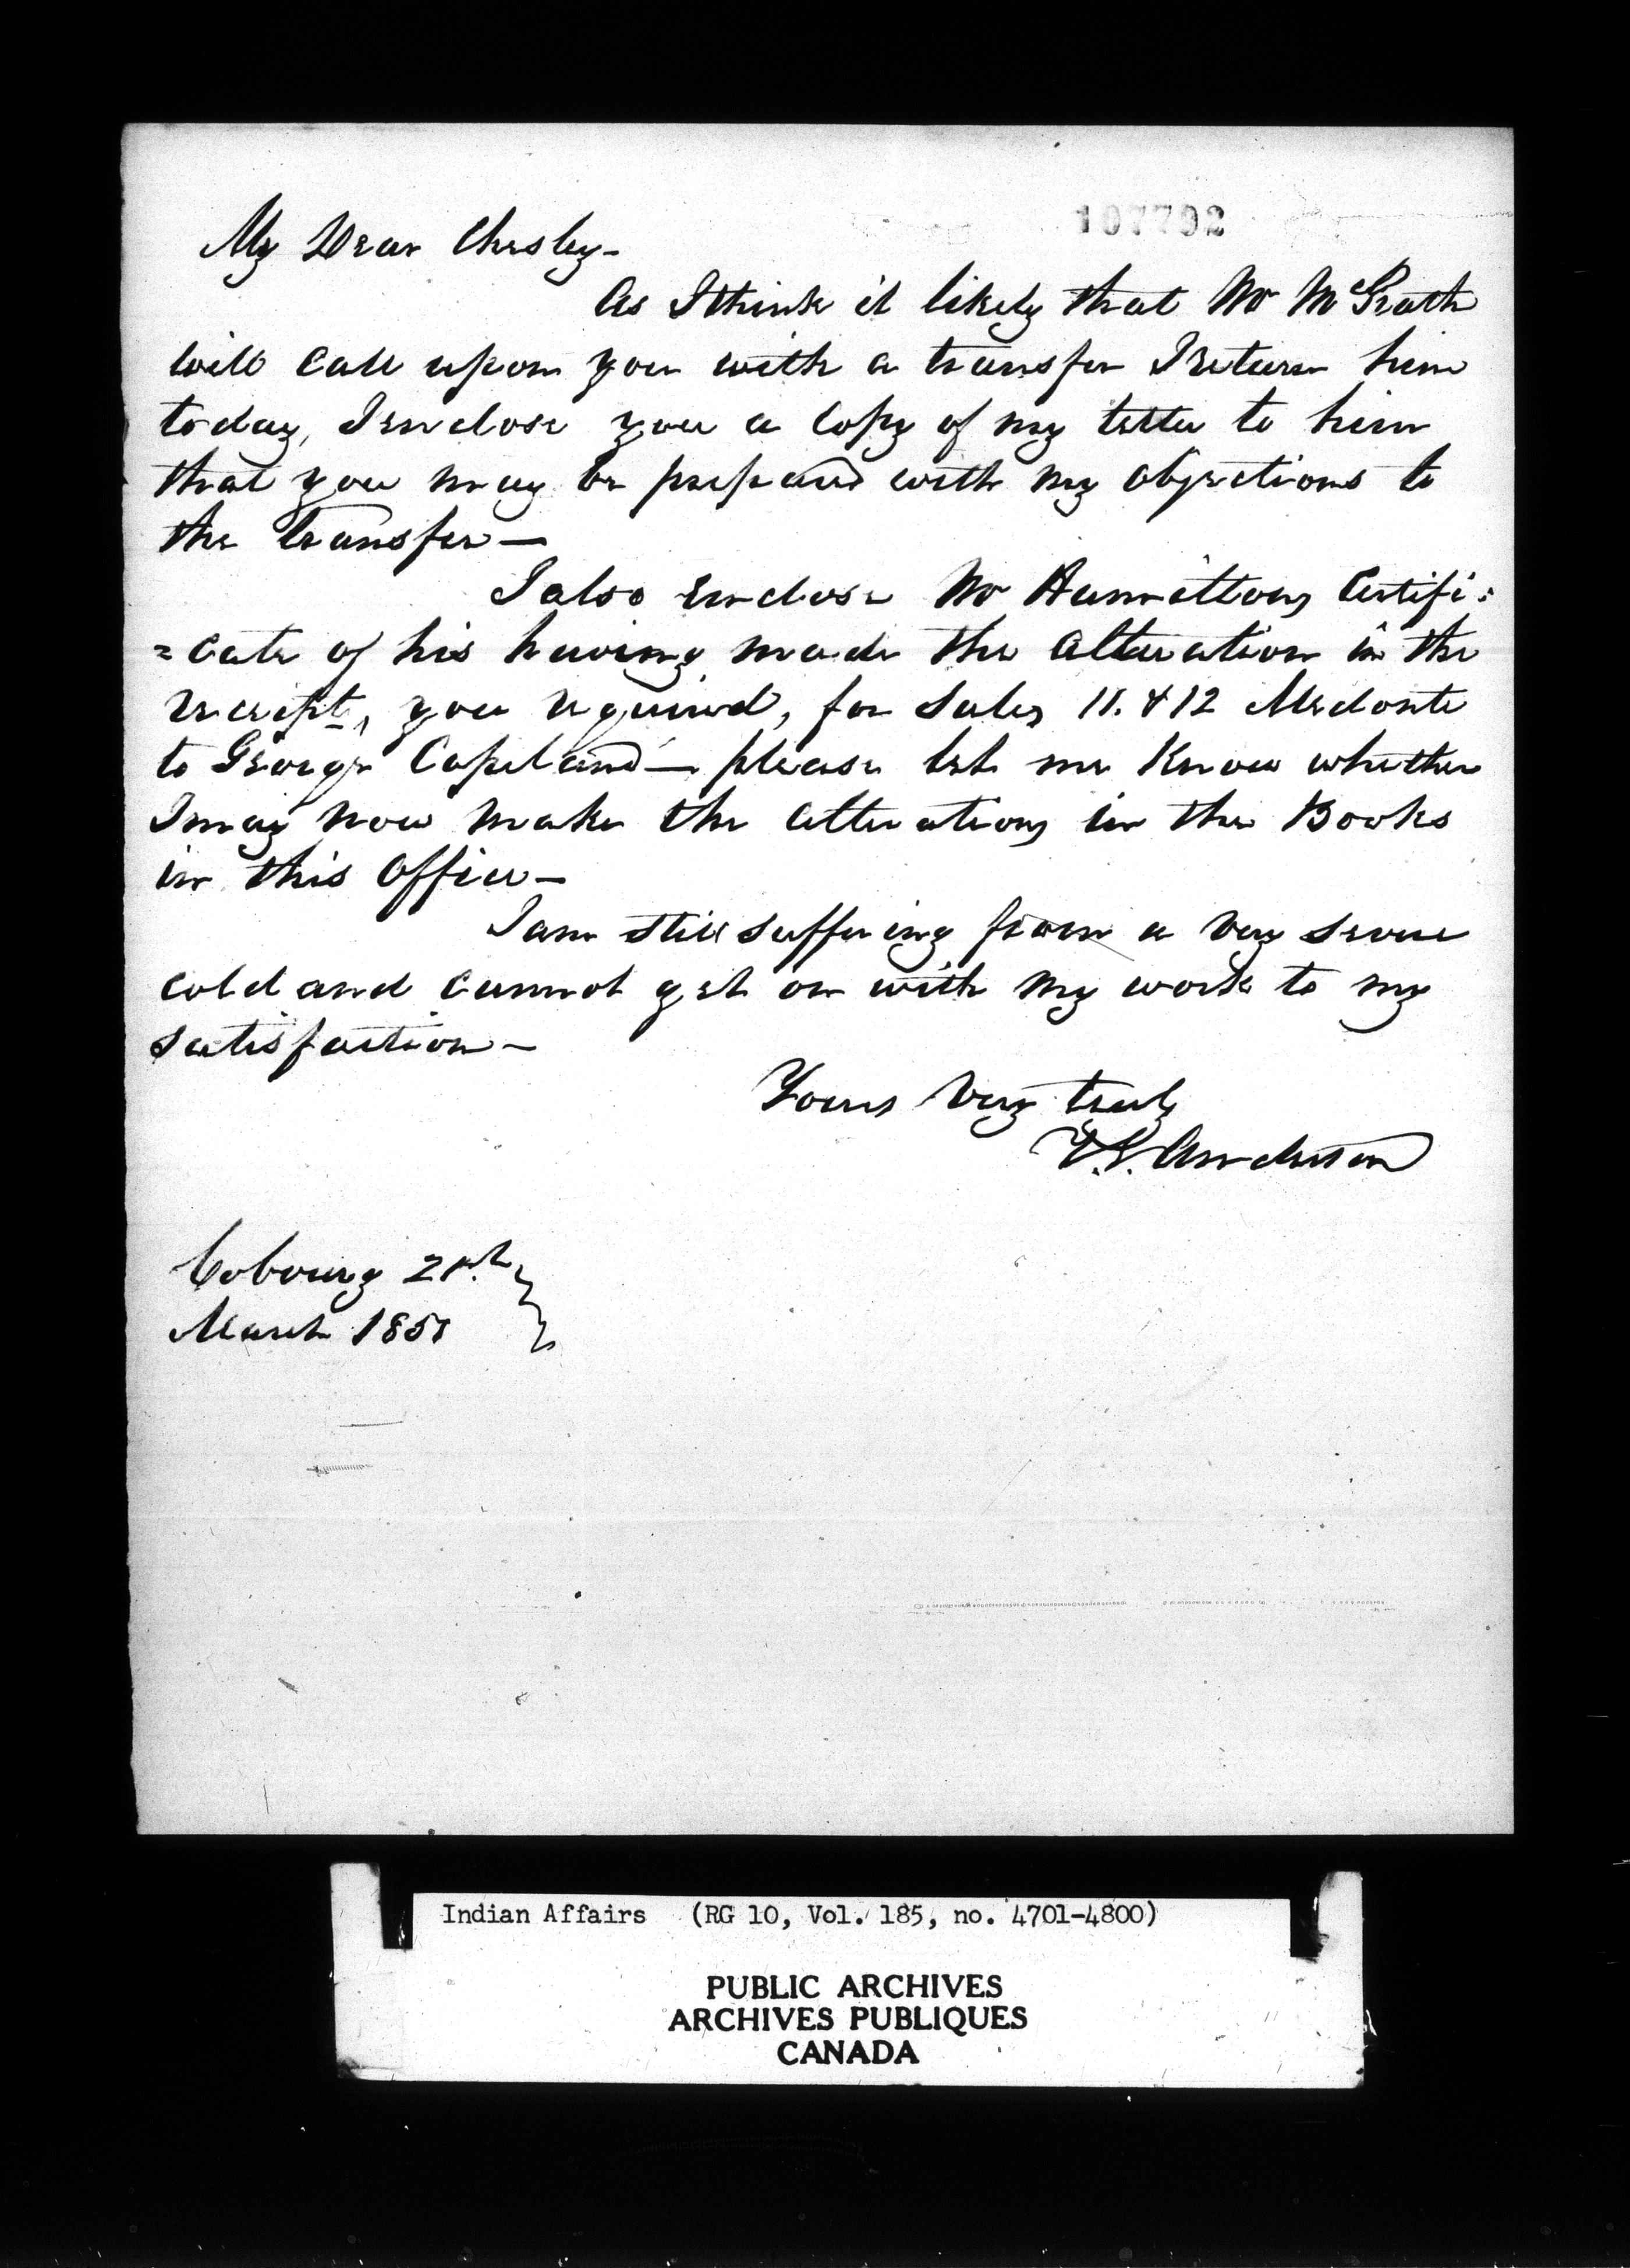 107792
My Dear Chesley—
As I think it likely that Mr McGrath
will call upon you with a transfer I return him
today, I enclose you a copy of my letter to him
that you may be prepared with my objections to
the transfer—
I also enclose Mr Hamiltons Certifi:
=cate of his having made the alteration in the
receipt, you required, for Sales 11. & 12 Medonte
to George Copeland— please let me know whether
I may now make the alterations in the Books
in this Office—
I am still suffering from a very severe
cold and cannot get on with my work to my
satisfaction—
Yours very truly
T.G. Anderson
Cobourg 21st
March 1851
Indian Affairs (RG 10, Vol. 185, no. 4701-4800)
PUBLIC ARCHIVES
ARCHIVES PUBLIQUES
CANADA